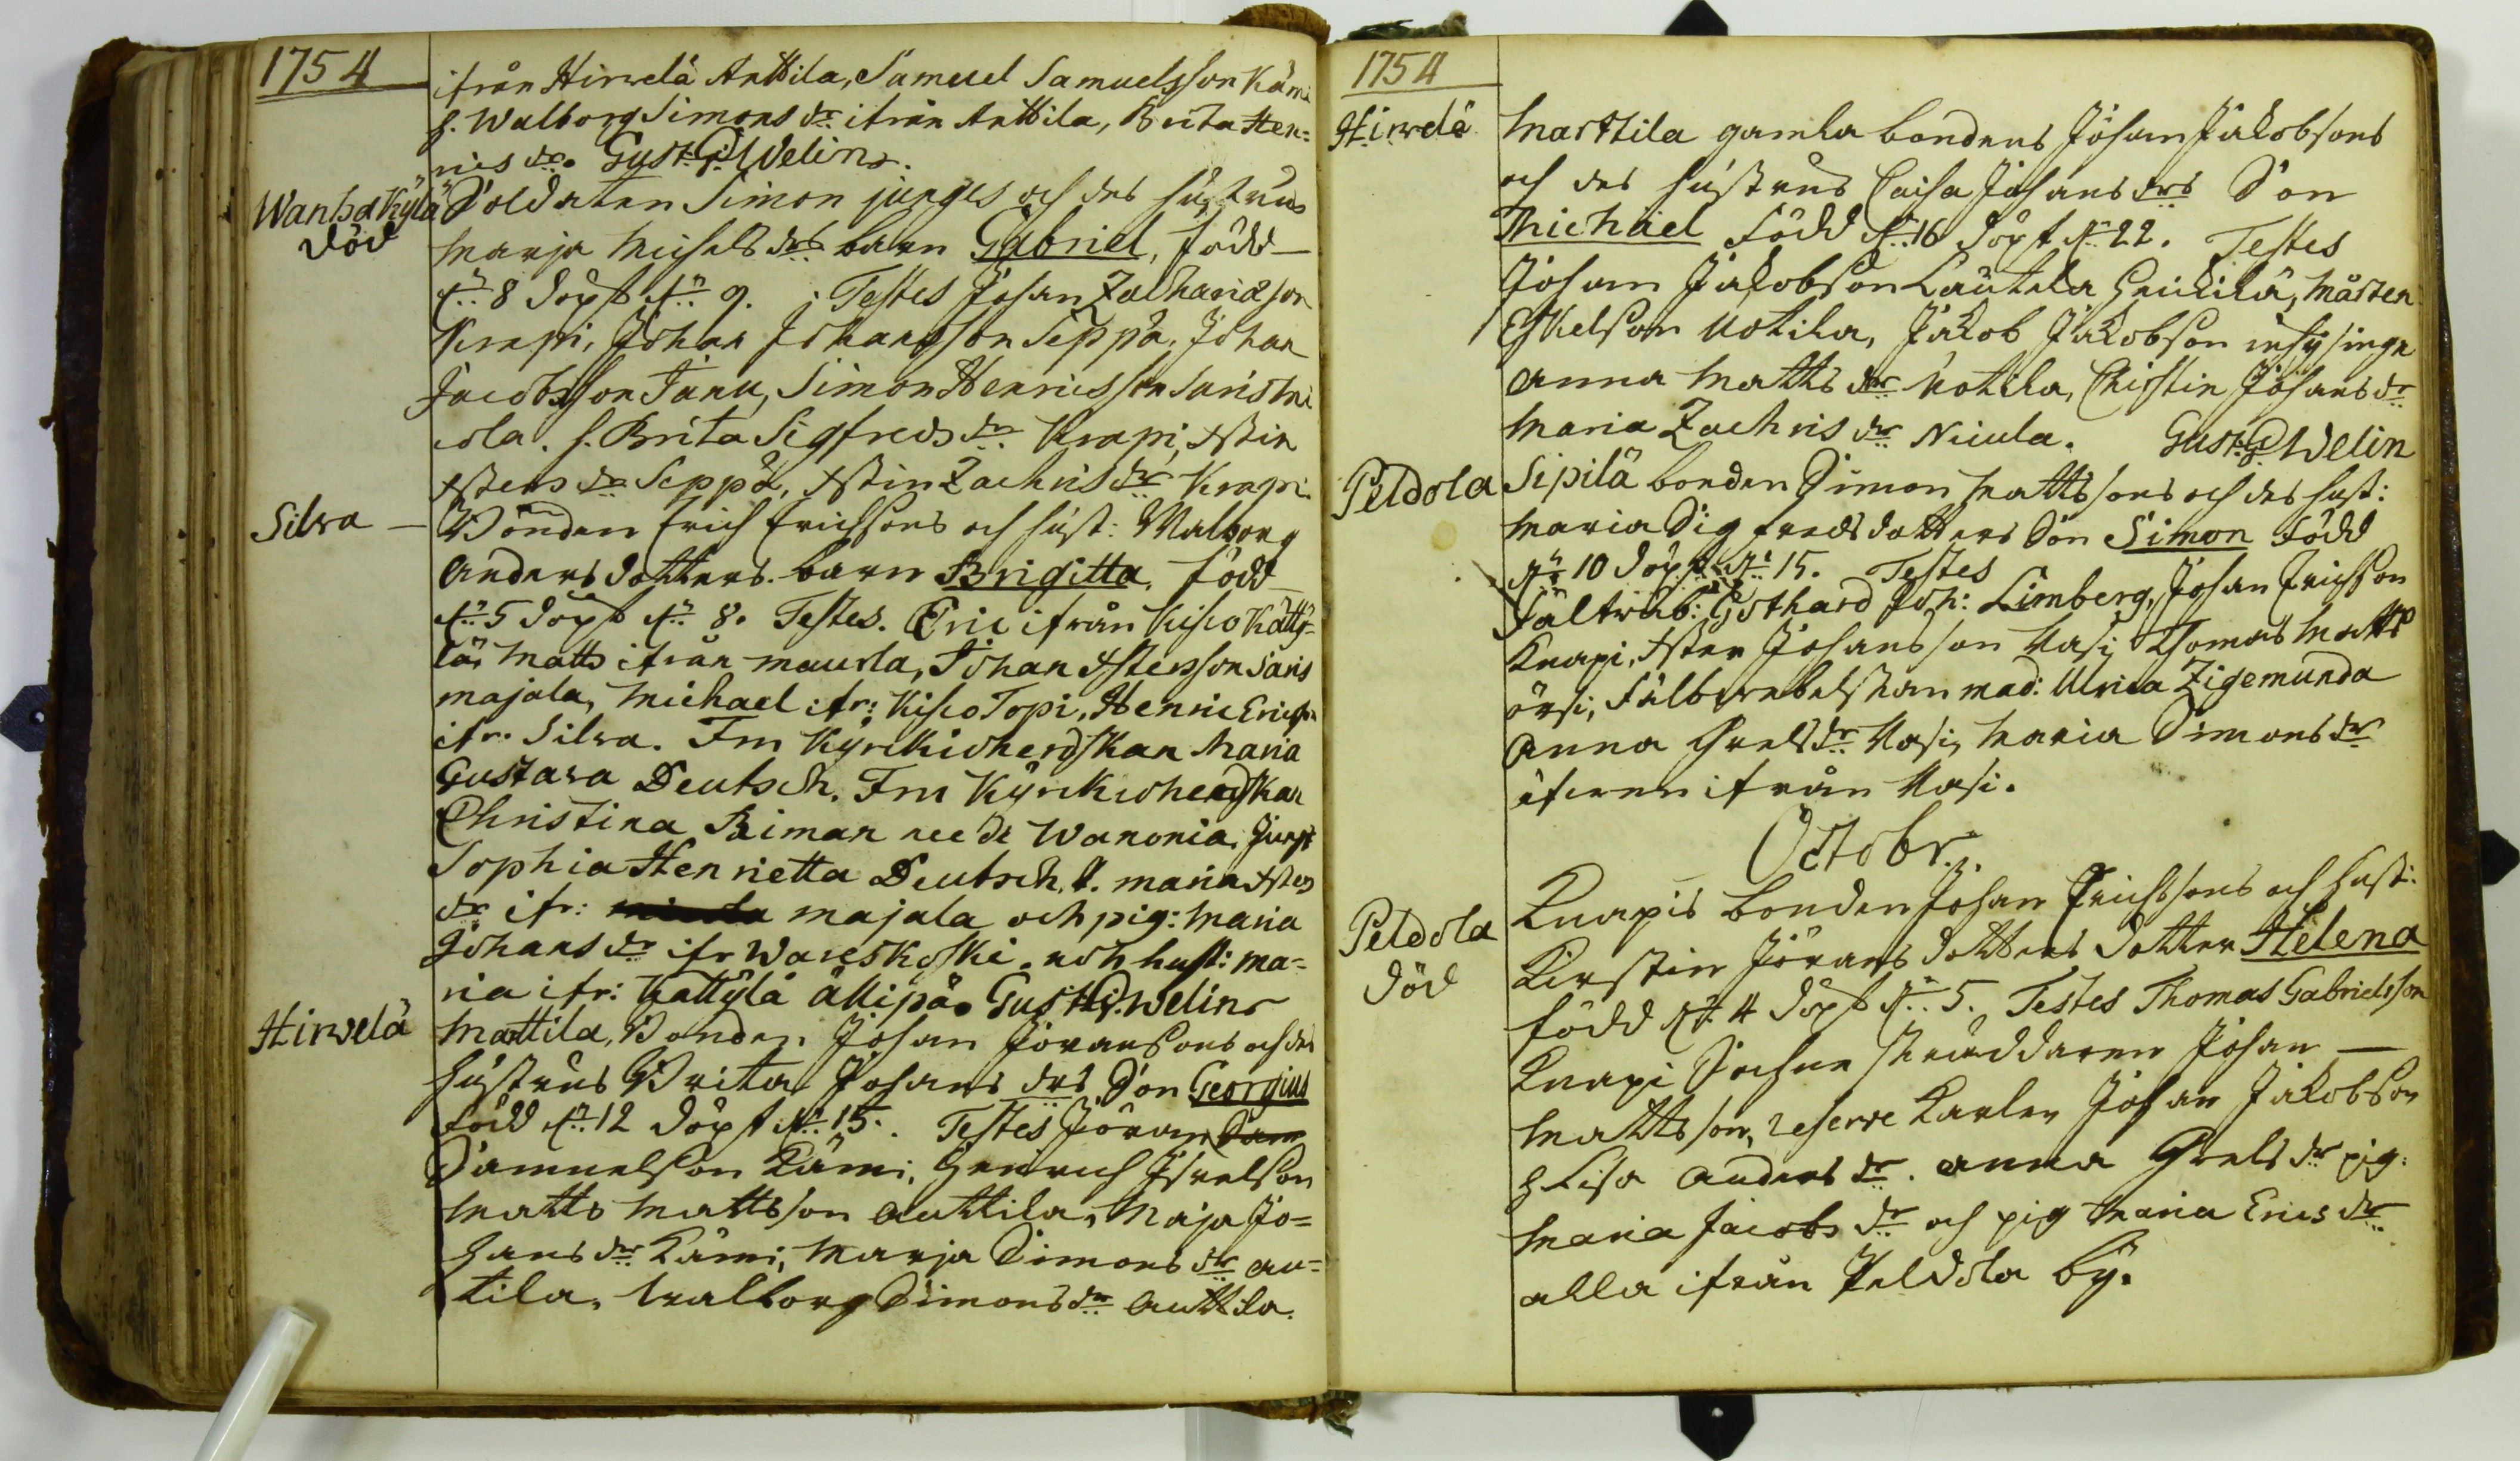 1754
ifrån Hirvelä Anttila, Samuel Samuelsson Kämi
h. Walborg Simons dr ifrån Anttila, Brita Hen=
rics dr. Gust: G: Welin.
Wanha Kÿlä Soldaten Simon junges och des hustrus
död Maria Michels drs barn Gabriel, född
d. 8 döpt d. 9. Testes Johan Zachariason
Knapi, Johan Johansson Seppä, Johan
Jacobsson Janu, Simon Henricsson
cola. h. Brita Sigfreds dr Knapi, Xstin
Xsters dr Seppä, Xstin Zachris dr Knapi.
Silva Bonden Erich Erichsons och hust: Walborg
Anders dotters barn Brigitta, född
d. 5 döpt d. 8. Testes. Eric ifrån Kisco Kätty=
lä, Matts ifrån maurla, Johan Xstersson Saris
majala, Michael ifr: Kisco Topi, Henric Ericsson
ifr. Silva. Fru Kyrckioherdskan Maria
Gustava Deutsch. Fru Kyrckioherdskan
Christina Riman née de Wanonia, Jungf
Sophia Henrietta Deutsch, h. maria Xsters
dr ifr: majala och pig: Maria
Johans dr ifr Wareskoski. och hust: ma=
ria ifr: Kattÿlä Allipä. Gust: G. Welin
Hirvelä Mattila, Bonden Johan Jöransons och des
hustrus Brita Johans drs Son Georgius
född d. 12 döpt d. 15. Testes Jöran Sam
Samuelson Kämi, Henrich Israelson
Matts Mattsson Anttila, Maja Jo=
hans dr Kämi, Marja Simons dr An=
tila, Walborg Simons dr Anttila.
1754
Hirvelä Marttila gamla bondens Johan Jakobsons
och des hustrus Caisa Johans drs Son
Michael född d. 16 döpt d. 22. Testes
Johan Jakobson Lautela Heickilä, Mårten
Eskelson Uotila, Jakob Jakobson inhysinge
Anna Matts dr Uotila, Christin Johans dr
Maria Zachris dr Nicula. Gust: G Welin
Peldola Sipilä bonden Simon Mattsons och des hust:
Maria Sigfreds dotters Son Simon född
d. 10 döpt d. 15. Testes
Fältwäb: Gothard Joh: Limberg, Johan Erichson
Knapi, Xster Johansson Uusi, Thomas Matts
örsi, Fältwebelskan mad: Ulrica Zigemunda
Anna Grels dr Uusi, Maria Simons dr
äfwen ifrån Uusi.
Octobr.
Peldola Knapis bonden Johan Erichsons och hust:
död Kirstin Jörans dotters dotter Helena
född d. 4 döpt d. 5. Testes Thomas Gabrielsson
Knapi Sochne skräddaren Johan
Mattsson, reserve Karlen Johan Jakobson
h Lisa Anders dr. Anna Grels dr pig:
Maria Jacobs dr och pig Maria Erics dr
alla ifrån Peldola by.